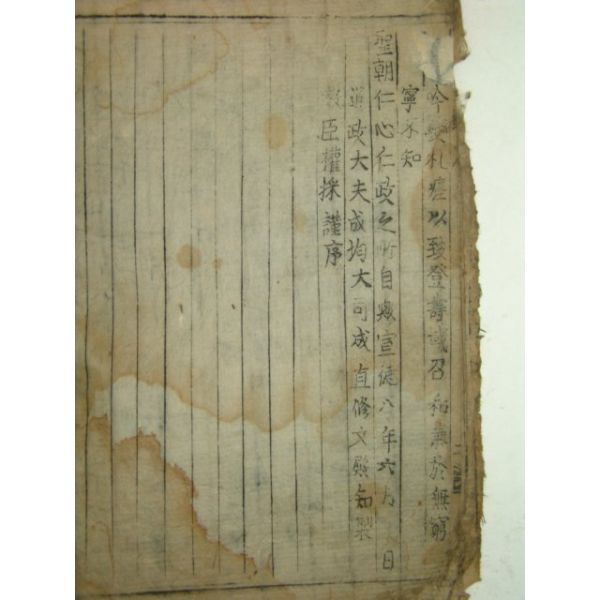 吟札瘥以致登壽域召和無於無窮
寧不知
聖朝仁心仁政之所自歟宣德八年六月 日
通政大夫成均大司成直修文殿知製
敎臣權採謹序